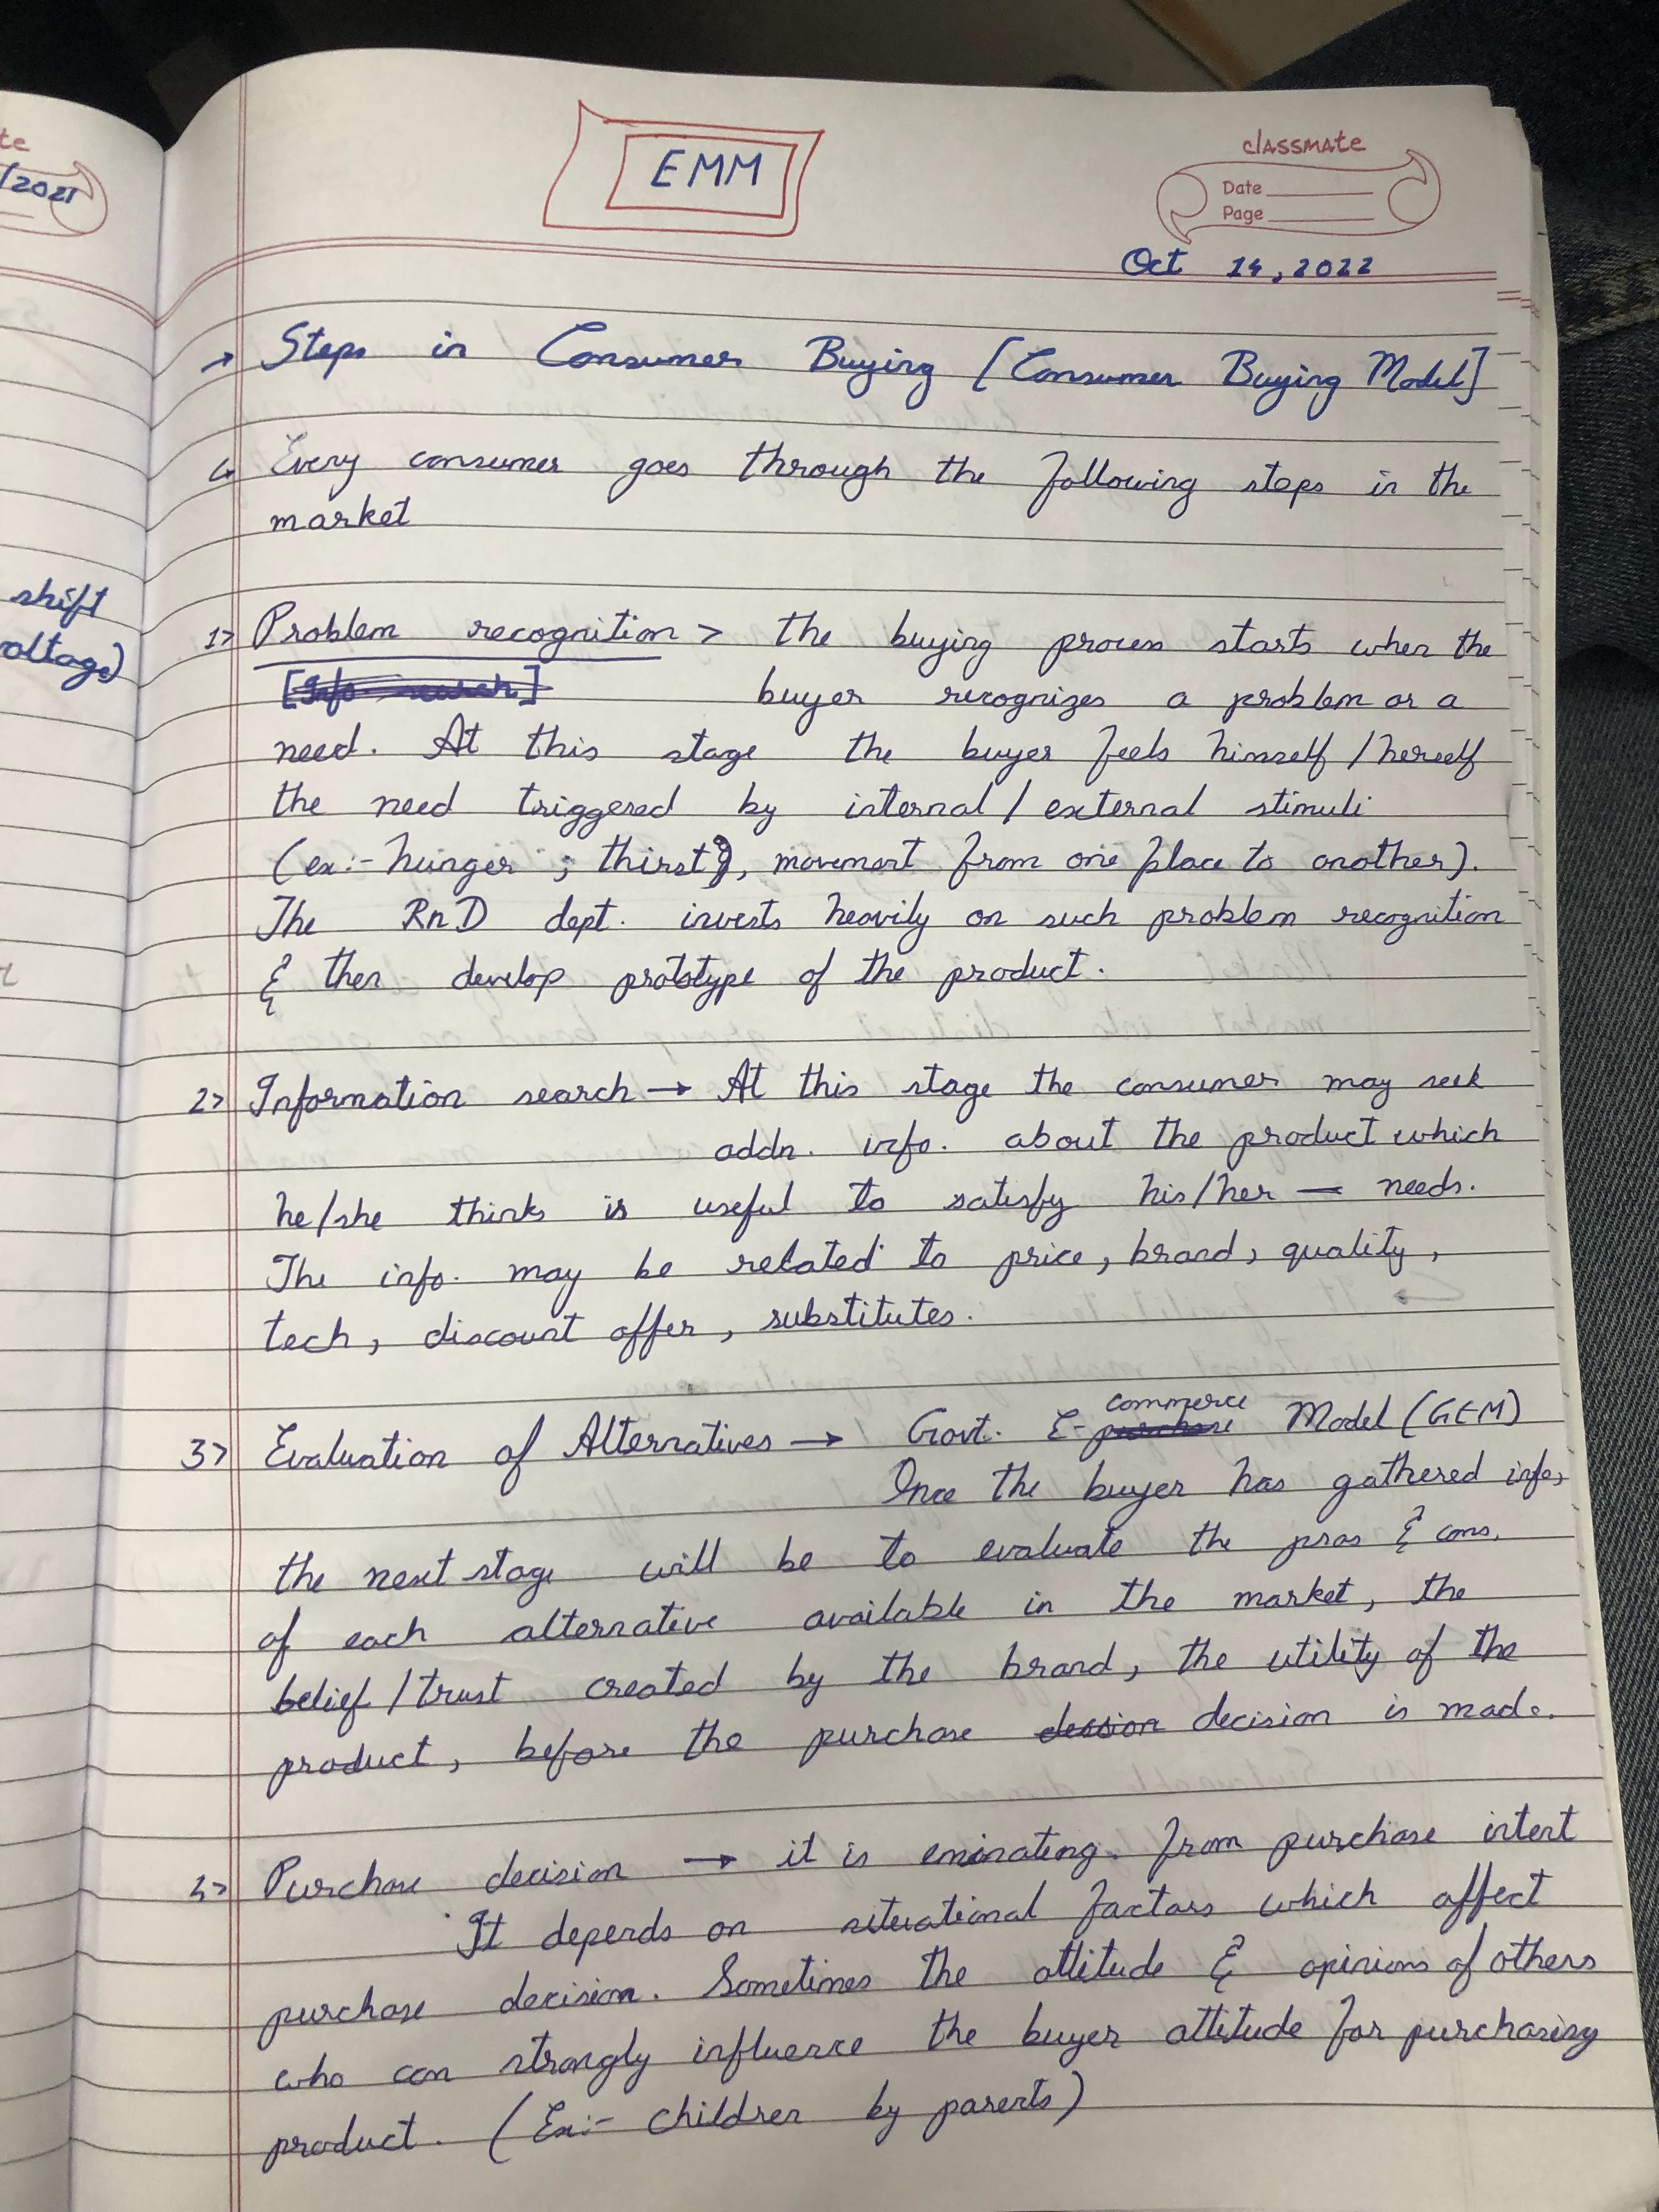 te
/2021
EMM
classmate
Date
Page
Oct 14, 2022
→ Steps in Consumer Buying [Consumer Buying Model]
↳ Every consumer goes through the following steps in the
market
shift
voltage)
1> Problem recognition > the buying process starts when the
[Info search] buyer recognizes a problem or a
need. At this stage the buyer feels himself / herself
the need triggered by internal / external stimuli
(ex:- hunger ; thirst, movement from one place to another).
The RnD dept. invests heavily on such problem recognition
& then develop prototype of the product.
2> Information search → At this stage the consumer may seek
addn. info. about the product which
he/she thinks is useful to satisfy his/her — needs.
The info. may be related to price, brand, quality,
tech, discount offer, substitutes.
commerce
3> Evaluation of Alternatives → Govt. E-purchase Model (GEM)
Once the buyer has gathered info,
the next stage will be to evaluate the pros & cons.
of each alternative available in the market, the
belief / trust created by the brand, the utility of the
product, before the purchase dession decision is made.
4> Purchase decision → it is eminating. from purchase intent
It depends on situational factors which affect
purchase decision. Sometimes the attitude & opinions of others
who can strongly influence the buyer attitude for purchasing
product. (Ex:- children by parents)